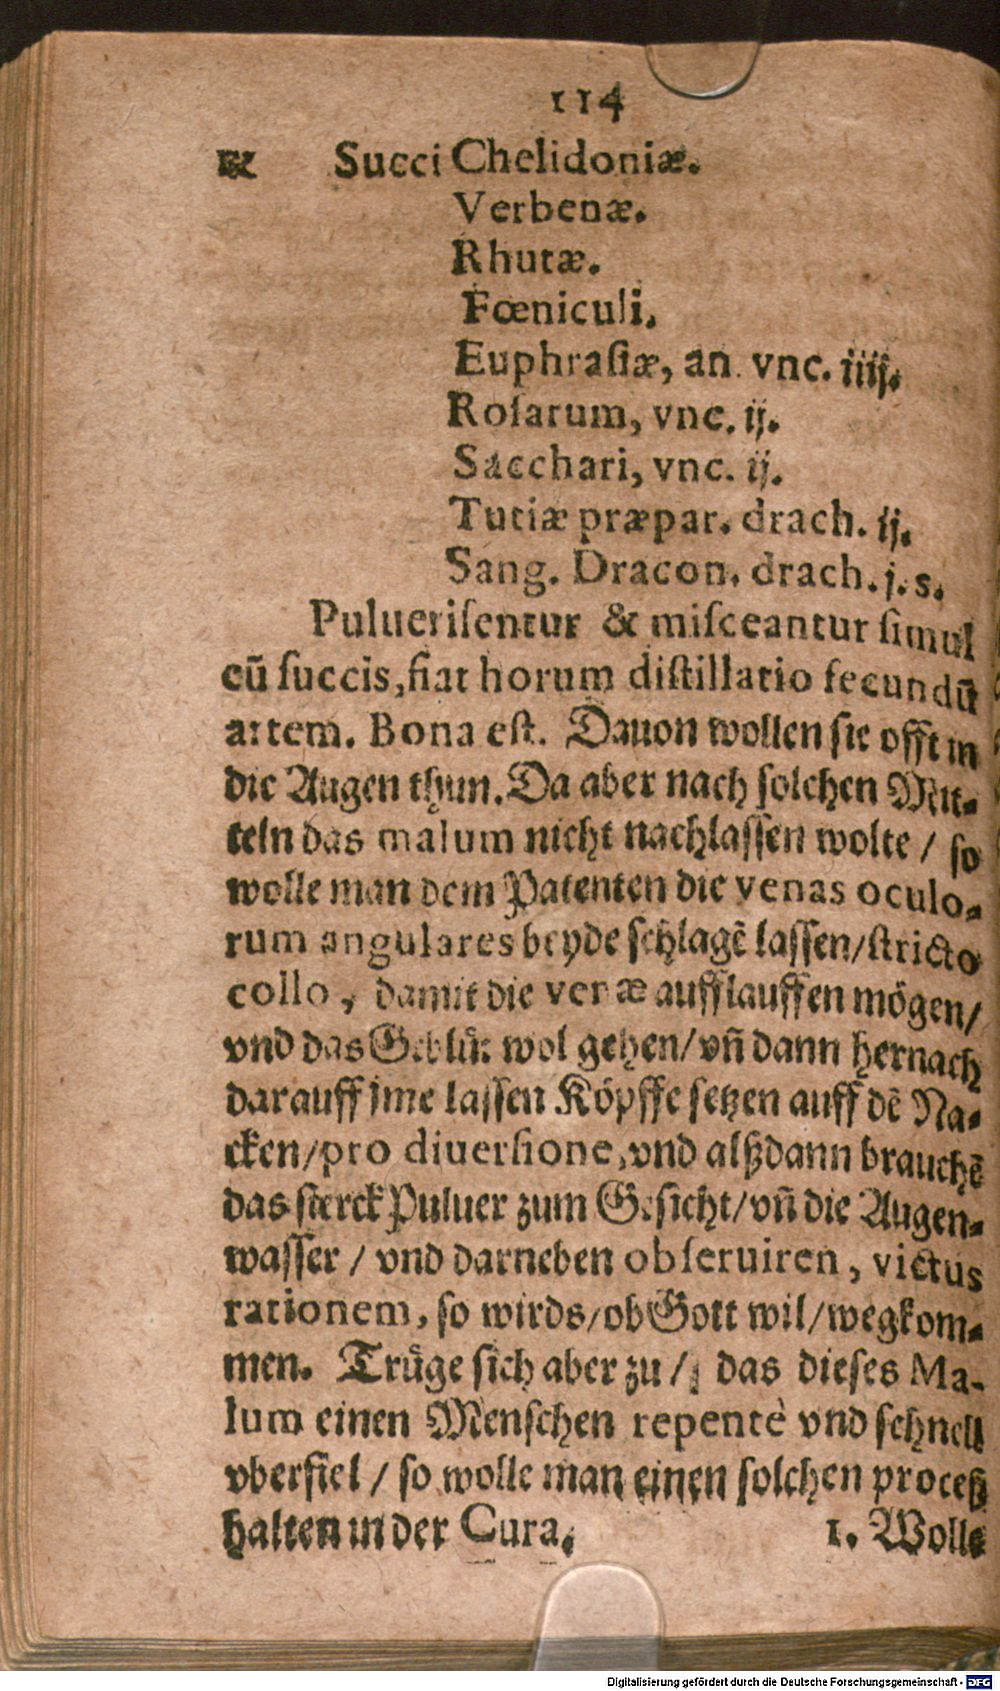 114
℞ Succi Chelidoniæ.
Verbenæ.
Rhutæ.
Fœniculi.
Euphraſiæ, an. vnc. iiij.
Roſarum, vnc. ij.
Sacchari, vnc. ij.
Tutiæ præpar. drach. ij.
Sang. Dracon. drach. j. s.
Pulueriſentur & miſceantur ſimul
cū ſuccis, fiat horum diſtillatio ſecundū
artem. Bona eſt. Dauon wollen ſie offt in
die Augen thun. Da aber nach ſolchen Mit-
teln das malum nicht nachlaſſen wolte / ſo
wolle man dem Patenten die venas oculo-
rum angulares beyde ſchlagē laſſen/ſtricto
collo, damit die venæ aufflauffen mögen/
vnd das Geblüt wol gehen/vñ dann hernach
darauff jme laſſen Köpffe ſetzen auff dē Na-
cken/pro diuerſione, vnd alßdann brauchē
das ſterck Puluer zum Geſicht/vñ die Augen-
waſſer / vnd darneben obſeruiren, victus
rationem, ſo wirds/ob Gott wil/wegkom-
men. Trüge ſich aber zu / das dieſes Ma-
lum einen Menſchen repentè vnd ſchnell
vberfiel / ſo wolle man einen ſolchen proceß
halten in der Cura. 1. Wolle
Digitalisierung gefördert durch die Deutsche Forschungsgemeinschaft - DFG